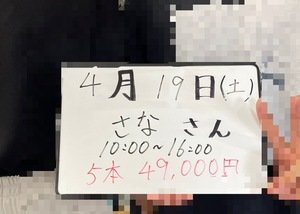 4月19日(土)
さなさん
10:00~16:00
5本 49,000円